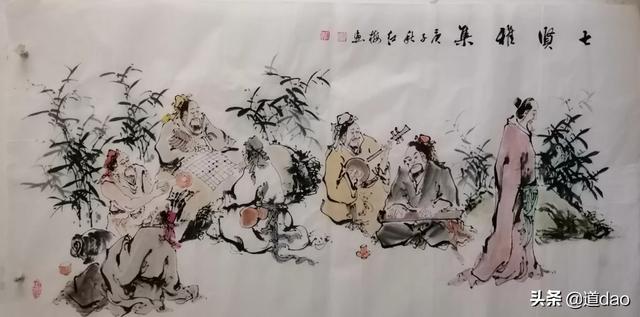 七贤雅集
庚子秋红梅画
头条 @道dao